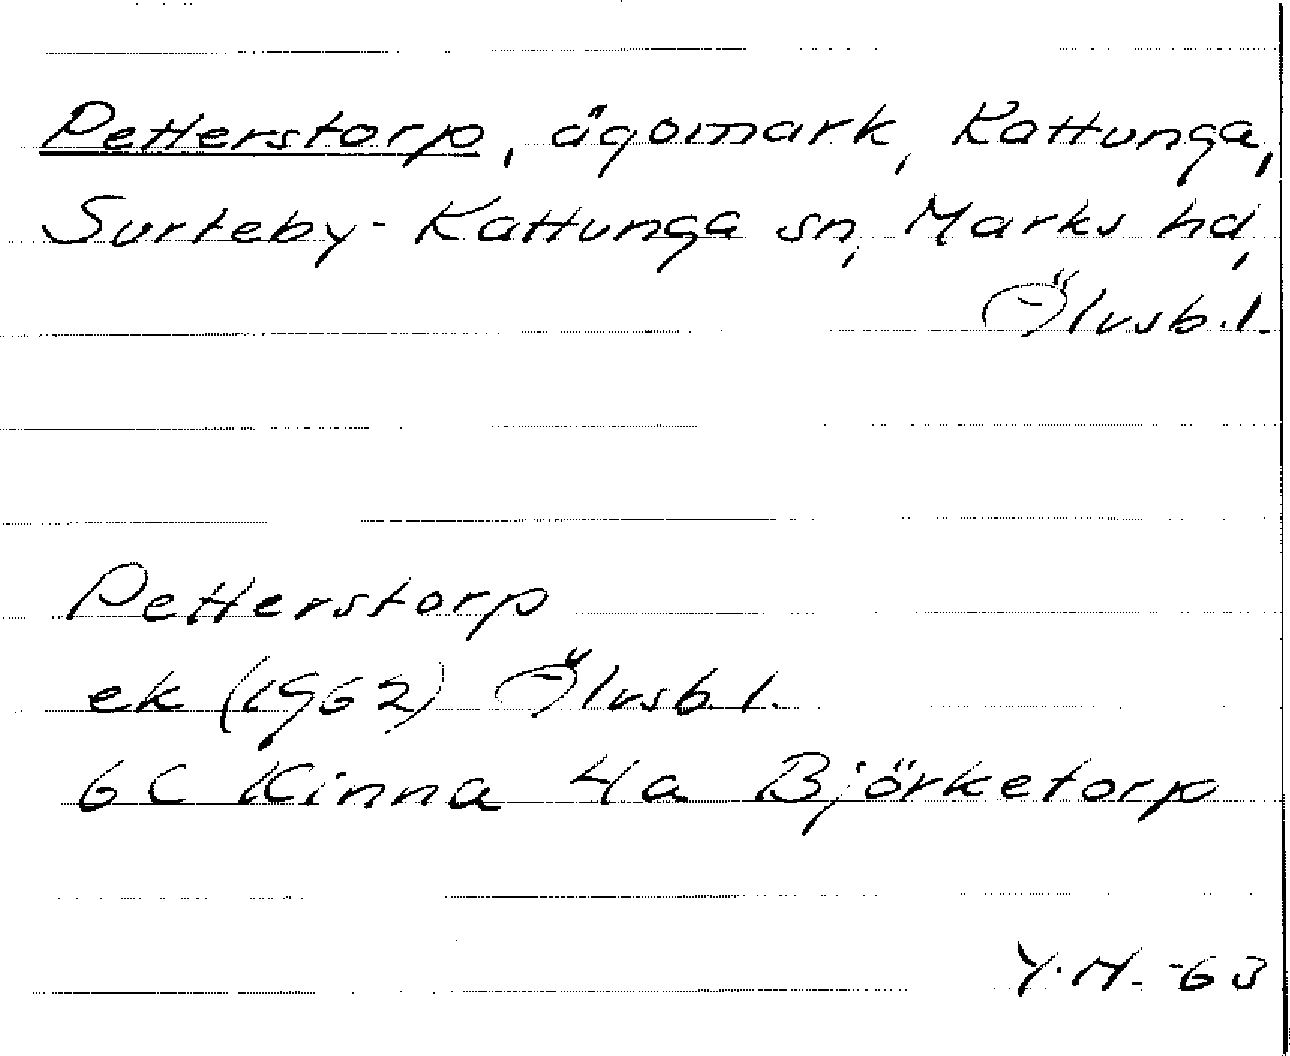 Petterstorp, ägomark, Kattunga,
Surteby-Kattunga sn, Marks hd,
Älvsb.l.
Petterstorp
ek (1962) Älvsb.l.
6C Kinna 4a Björketorp
Y.M.-63